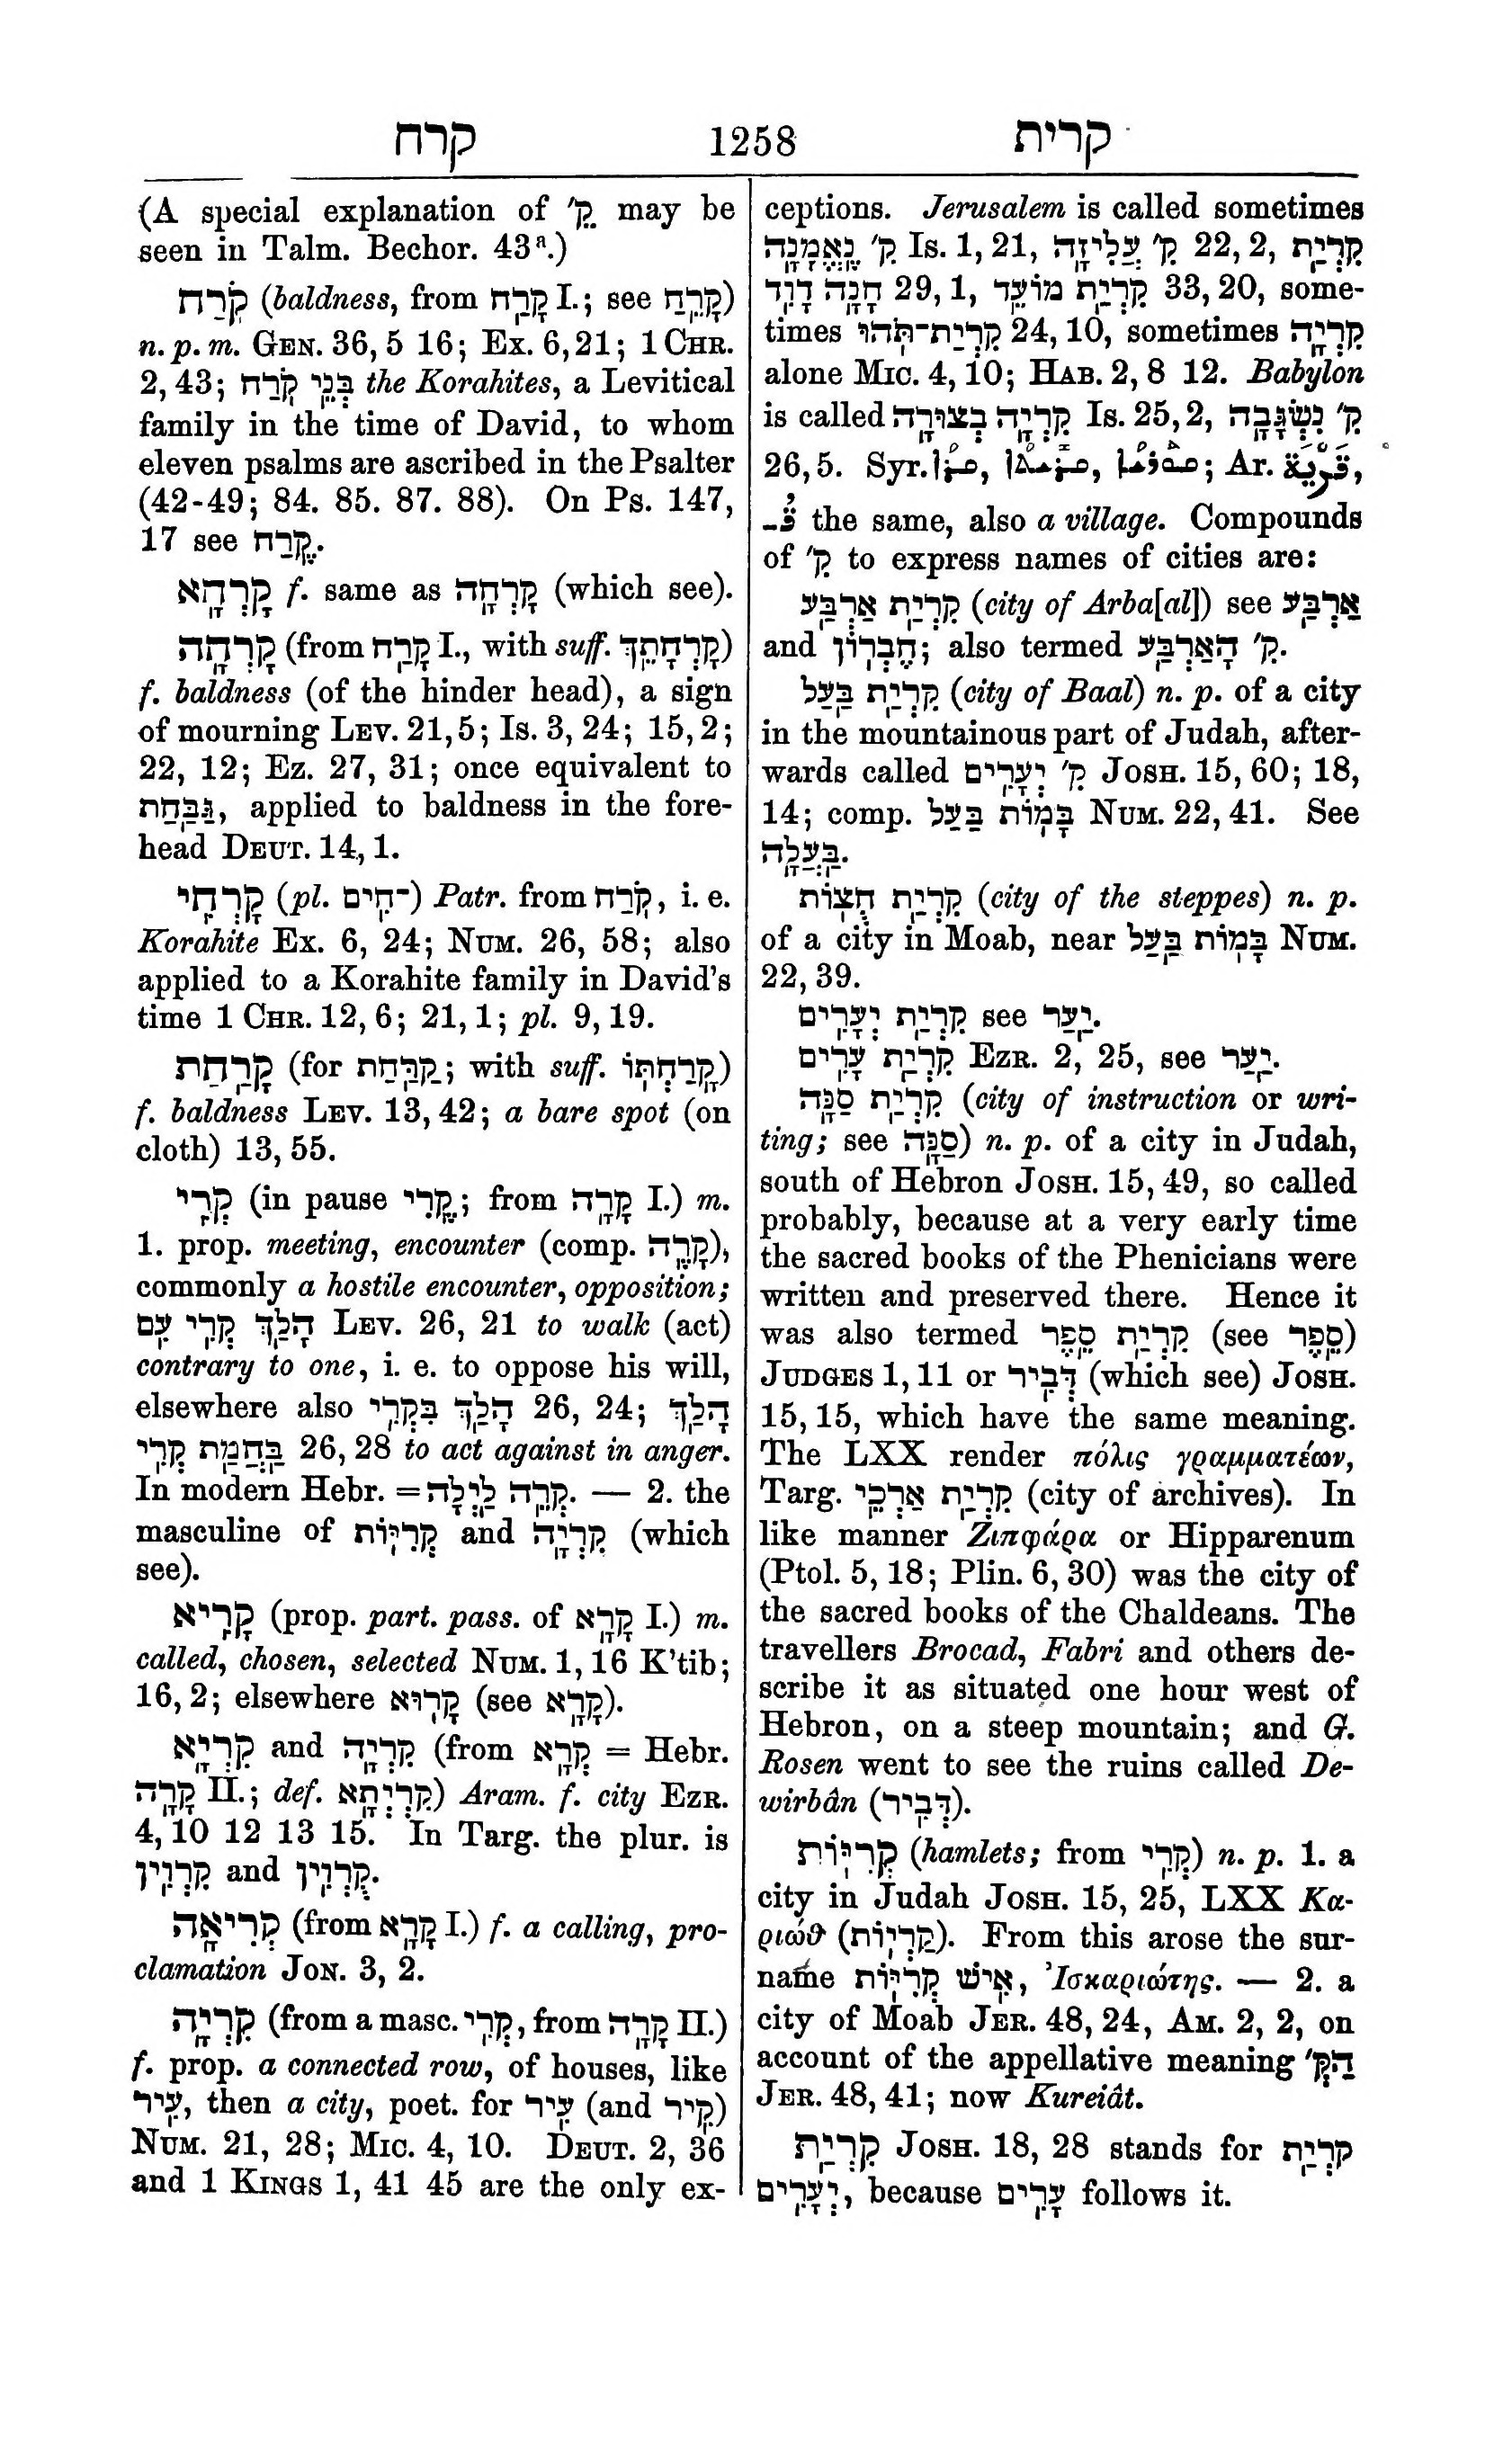 קרח 1258 קרית
(A special explanation of קֵ' may be
seen in Talm. Bechor. 43ª.)
קֹרַח (baldness, from קָרַח I.; see קָרֵחַ)
n. p. m. GEN. 36, 5 16; Ex. 6,21; 1 CHR.
2, 43; בְּנֵי קֹרַח the Korahites, a Levitical
family in the time of David, to whom
eleven psalms are ascribed in the Psalter
(42-49; 84. 85. 87. 88). On Ps. 147,
17 see קֶרַח.
קָרְחָא f. same as קָרְחָה (which see).
קָרְחָה (from קָרַח I., with suff. קָרְחָתֵךְ)
f. baldness (of the hinder head), a sign
of mourning LEV. 21,5; Is. 3, 24; 15, 2;
22, 12; Ez. 27, 31; once equivalent to
גַּבַּחַת, applied to baldness in the fore-
head DEUT. 14, 1.
קָרְחִי (pl. ־חִים) Patr. from קֹרַח, i. e.
Korahite Ex. 6, 24; NUM. 26, 58; also
applied to a Korahite family in David's
time 1 CHR. 12, 6; 21, 1; pl. 9, 19.
קָרַחַת (for קַרַּחַת; with suff. קָרַחְתּוֹ)
f. baldness LEV. 13, 42; a bare spot (on
cloth) 13, 55.
קְרִי (in pause קֶרִי; from קָרָה I.) m.
1. prop. meeting, encounter (comp. קָרֶה),
commonly a hostile encounter, opposition;
הָלַךְ קְרִי עִם LEV. 26, 21 to walk (act)
contrary to one, i. e. to oppose his will,
elsewhere also הָלַךְ בִּקְרִי 26, 24; הָלַךְ
בַּחֲמַת קְרִי 26, 28 to act against in anger.
In modern Hebr. = קְרֵה לַיְלָה. — 2. the
masculine of קְרִיּוֹת and קִרְיָה (which
see).
קָרִיא (prop. part. pass. of קָרָא I.) m.
called, chosen, selected NUM. 1, 16 K'tib;
16, 2; elsewhere קָרוּא (see קָרָא).
קִרְיָא and קִרְיָה (from קְרָא = Hebr.
קָרָה II.; def. קִרְיְתָא) Aram. f. city EZR.
4, 10 12 13 15. In Targ. the plur. is
קִרְוִין and קֻרְוִין.
קְרִיאָה (from קָרָא I.) f. a calling, pro-
clamation JON. 3, 2.
קִרְיָה (from a masc. קְרִי, from קָרָה II.)
f. prop. a connected row, of houses, like
עִיר, then a city, poet. for עִיר (and קִיר)
NUM. 21, 28; MIC. 4, 10. DEUT. 2, 36
and 1 KINGS 1, 41 45 are the only ex-
ceptions. Jerusalem is called sometimes
קִ' נֶאֱמָנָה Is. 1, 21, קִ' עַלִּיזָה 22, 2, קִרְיַת
חָנָה דָוִד 29, 1, קִרְיַת מוֹעֵד 33, 20, some-
times קִרְיַת־תֹּהוּ 24, 10, sometimes קִרְיָה
alone MIC. 4, 10; HAB. 2, 8 12. Babylon
is called קִרְיָה בְצוּרָה Is. 25, 2, קִ' נִשְׂגָּבָה
26, 5. Syr. ; Ar. قَرْيَة,
the same, also a village. Compounds
of קִ' to express names of cities are:
קִרְיַת אַרְבַּע (city of Arba[al]) see אַרְבַּע
and חֶבְרוֹן; also termed קִ' הָאַרְבַּע.
קִרְיַת בַּעַל (city of Baal) n. p. of a city
in the mountainous part of Judah, after-
wards called קִ' יְעָרִים JOSH. 15, 60; 18,
14; comp. בָּמוֹת בַּעַל NUM. 22, 41. See
בַּעֲלָה.
קִרְיַת חֻצוֹת (city of the steppes) n. p.
of a city in Moab, near בָּמוֹת בַּעַל NUM.
22, 39.
קִרְיַת יְעָרִים see יַעַר.
קִרְיַת עָרִים EZR. 2, 25, see יַעַר.
קִרְיַת סַנָּה (city of instruction or wri-
ting; see סַנָּה) n. p. of a city in Judah,
south of Hebron JOSH. 15, 49, so called
probably, because at a very early time
the sacred books of the Phenicians were
written and preserved there. Hence it
was also termed קִרְיַת סֵפֶר (see סֵפֶר)
JUDGES 1, 11 or דְּבִיר (which see) JOSH.
15, 15, which have the same meaning.
The LXX render πόλις γραμματέων,
Targ. קִרְיַת אַרְכֵי (city of archives). In
like manner Ζιπφάρα or Hipparenum
(Ptol. 5, 18; Plin. 6, 30) was the city of
the sacred books of the Chaldeans. The
travellers Brocad, Fabri and others de-
scribe it as situated one hour west of
Hebron, on a steep mountain; and G.
Rosen went to see the ruins called De-
wirbân (דְּבִיר).
קְרִיּוֹת (hamlets; from קְרִי) n. p. 1. a
city in Judah JOSH. 15, 25, LXX Κα-
ριώθ (קַרְיוֹת). From this arose the sur-
name אִישׁ קְרִיּוֹת, Ἰσκαριώτης. — 2. a
city of Moab JER. 48, 24, AM. 2, 2, on
account of the appellative meaning הַקְּ'
JER. 48, 41; now Kureiât.
קִרְיַת JOSH. 18, 28 stands for קִרְיַת
יְעָרִים, because עָרִים follows it.